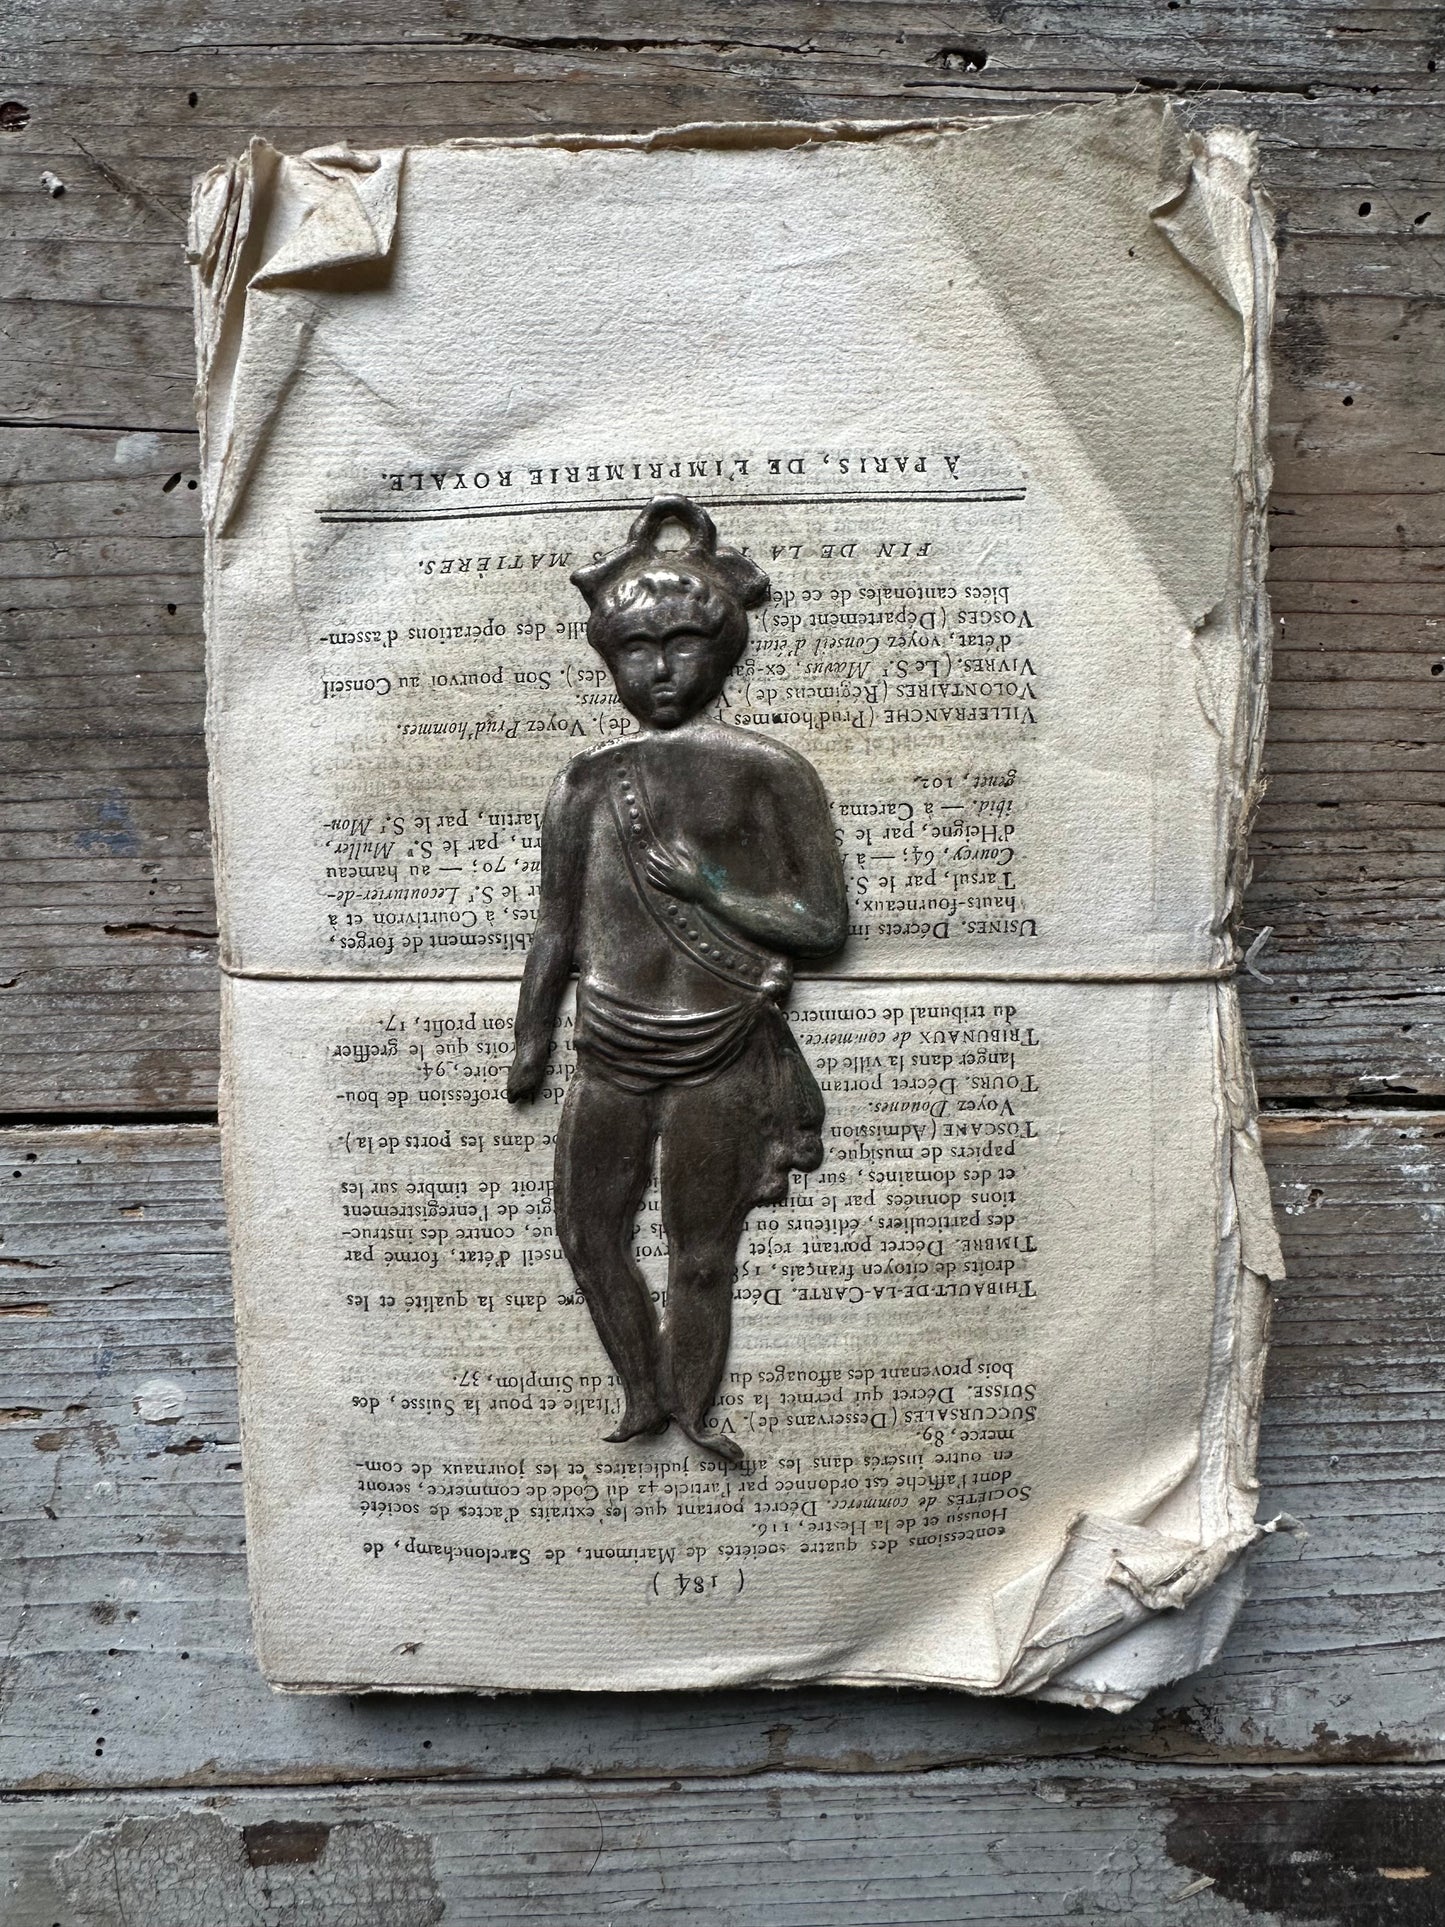 ( 184 )
concessions des quatre sociétés de Marimont, de Sarclonchamp, de
Houssu et de la Hestre, 116.
SOCIÉTÉS de commerce. Décret portant que les extraits d'actes de société
dont l'affiche est ordonnée par l'article 42 du Code de commerce, seront
en outre insérés dans les affiches judiciaires et les journaux de com-
merce, 89.
SUCCURSALES (Desservans de). Voy
SUISSE. Décret qui permet la sor l'Italie et pour la Suisse, des
bois provenant des affouages du nt du Simplon, 37.
THIBAULT-DE-LA-CARTE. Décre de gre dans la qualité et les
droits de citoyen français, 158
TIMBRE. Décret portant rejet rvoi nseil d'état, formé par
des particuliers, éditeurs ou ds que, contre des instruc-
tions données par le minis nc gie de l'enregistrement
et des domaines, sur la droit de timbre sur les
papiers de musique,
TOSCANE (Admission dans les ports de la).
Voyez Douanes.
TOURS. Décret portant de la profession de bou-
langer dans la ville de dre Loire, 94.
TRIBUNAUX de commerce. droits que le greffier
du tribunal de commerce son profit, 17.
USINES. Décrets im ablissement de forges,
hauts-fourneaux, nes, à Courtivron et à
Tarsul, par le S. r le S.r Lecouturier-de-
Courcy, 64; — à ne, 70; — au hameau
d'Heigne, par le S rn, par le S.r Muller,
ibid. — à Carema, Martin, par le S.r Mon-
genet, 102.
VILLEFRANCHE (Prud'hommes de). Voyez Prud'hommes.
VOLONTAIRES (Régimens de). V mens.
VIVRES. (Le S.r Mavus, ex-gar des). Son pourvoi au Conseil
d'état, voyez Conseil d'état.
VOSGES (Département des). ulle des opérations d'assem-
blées cantonales de ce dép
FIN DE LA T S MATIÈRES.
À PARIS, DE L'IMPRIMERIE ROYALE.